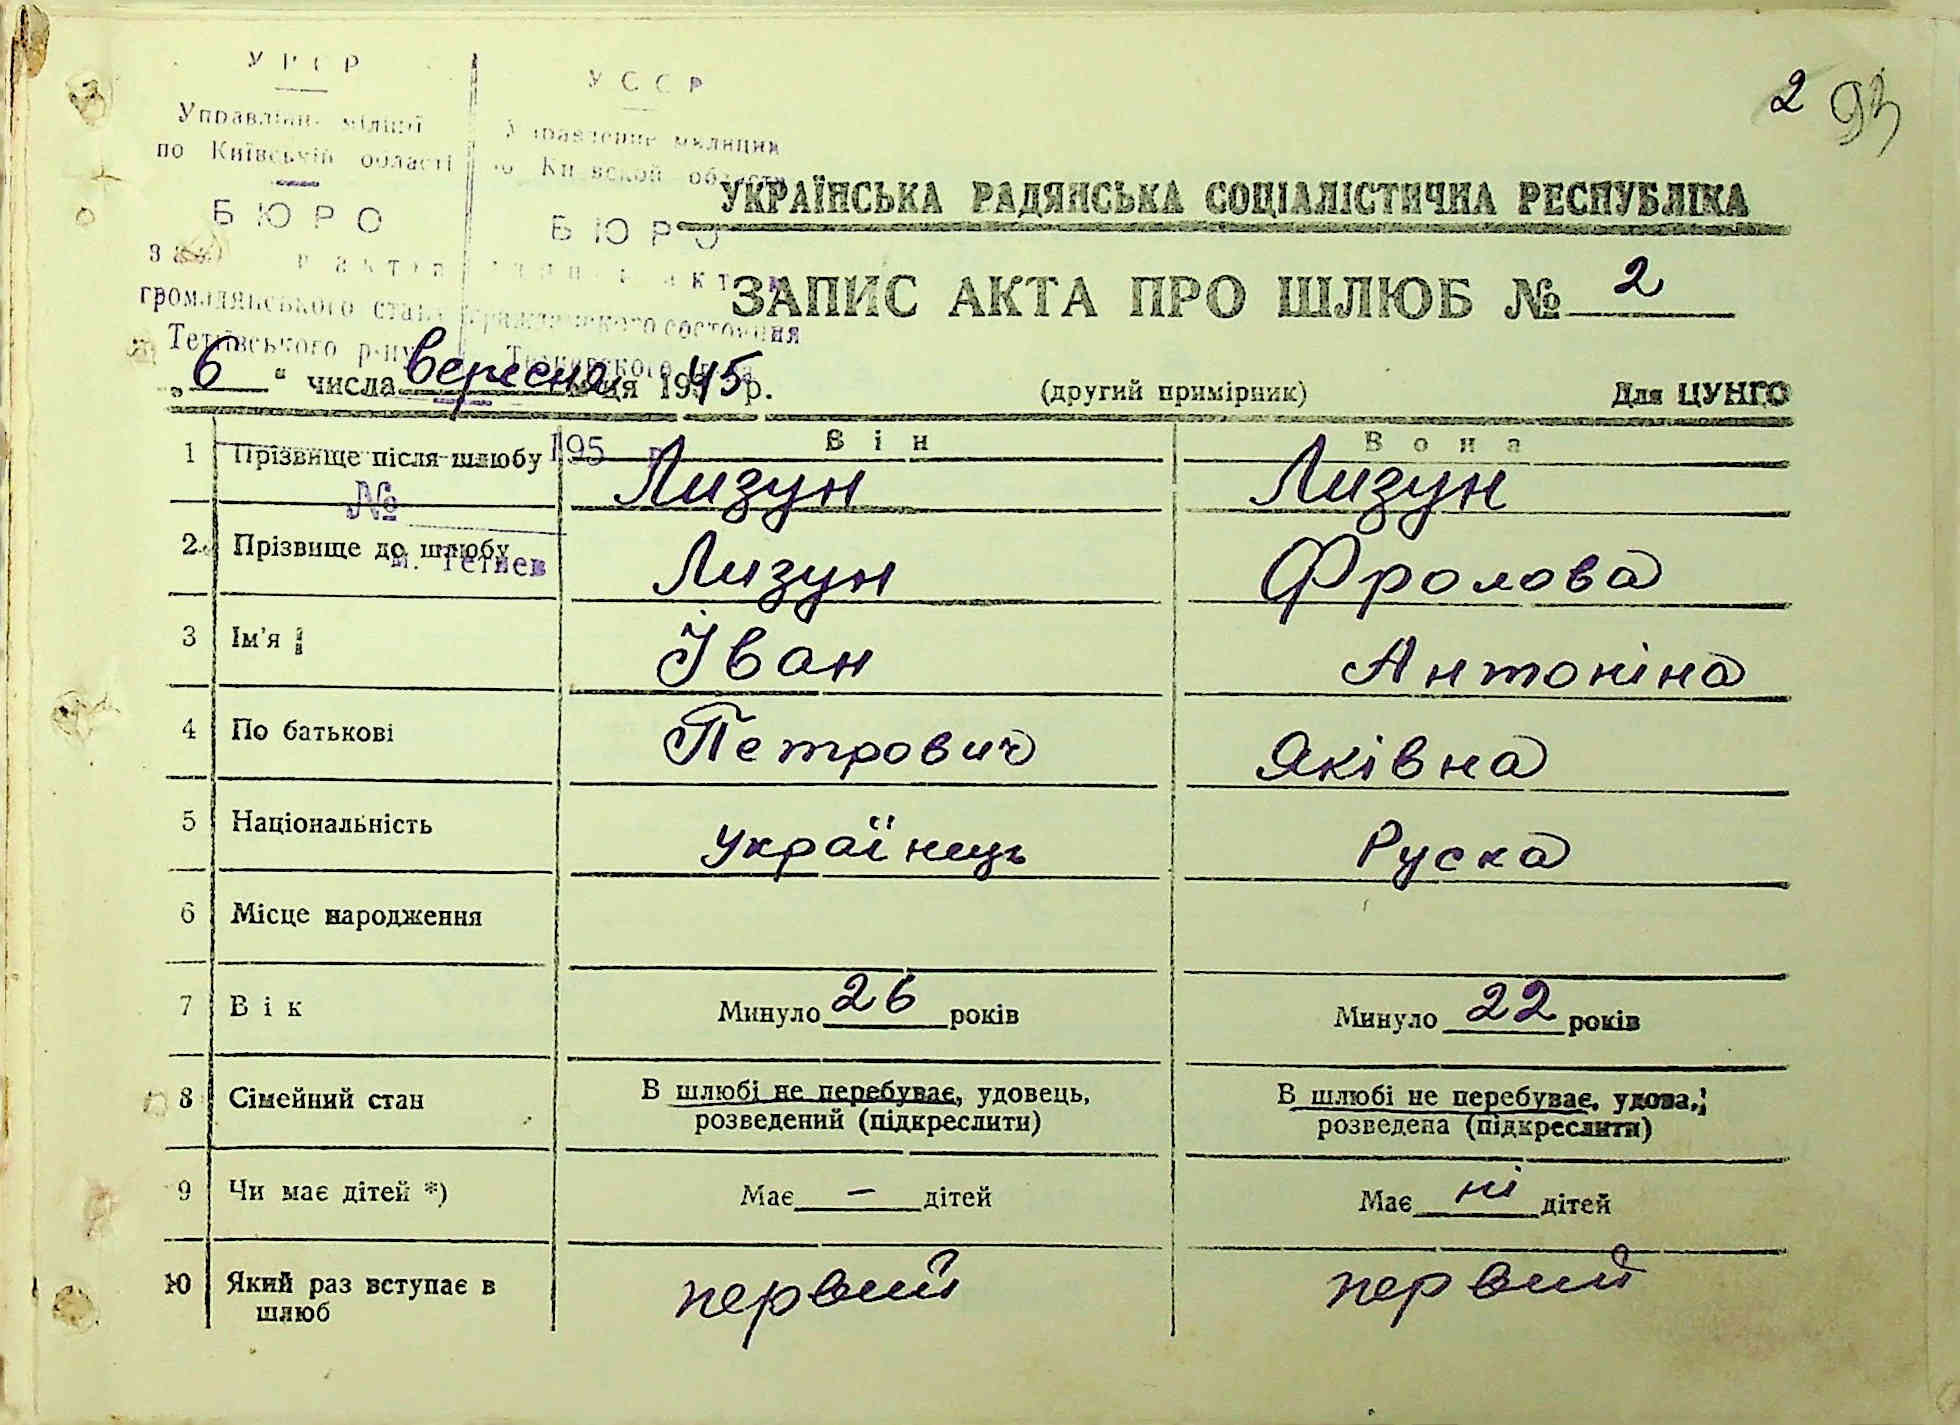 УРСР
Управлінн міліції
по Київській області
БЮРО
громадянського стану
Тетіївського р-ну
УССР
Управление милиции
по Киевской области
БЮРО
гражданского состояния
195 р.
№
м. Тетиев
2 93
УКРАЇНСЬКА РАДЯНСЬКА СОЦІАЛІСТИЧНА РЕСПУБЛІКА
ЗАПИС АКТА ПРО ШЛЮБ № 2
„6“ числа вересня місяця 1945 р. (другий примірник) Для ЦУНГО
Він Вона
1 Прізвище після шлюбу Лизун Лизун
2 Прізвище до шлюбу Лизун Фролова
3 Ім'я Іван Антоніна
4 По батькові Петрович Яківна
5 Національність українець Руска
6 Місце народження
7 Вік Минуло 26 років Минуло 22 років
8 Сімейний стан В шлюбі не перебуває, удовець, В шлюбі не перебуває, удова,
розведений (підкреслити) розведена (підкреслити)
9 Чи має дітей *) Має — дітей Має ні дітей
10 Який раз вступає в первий первий
шлюб